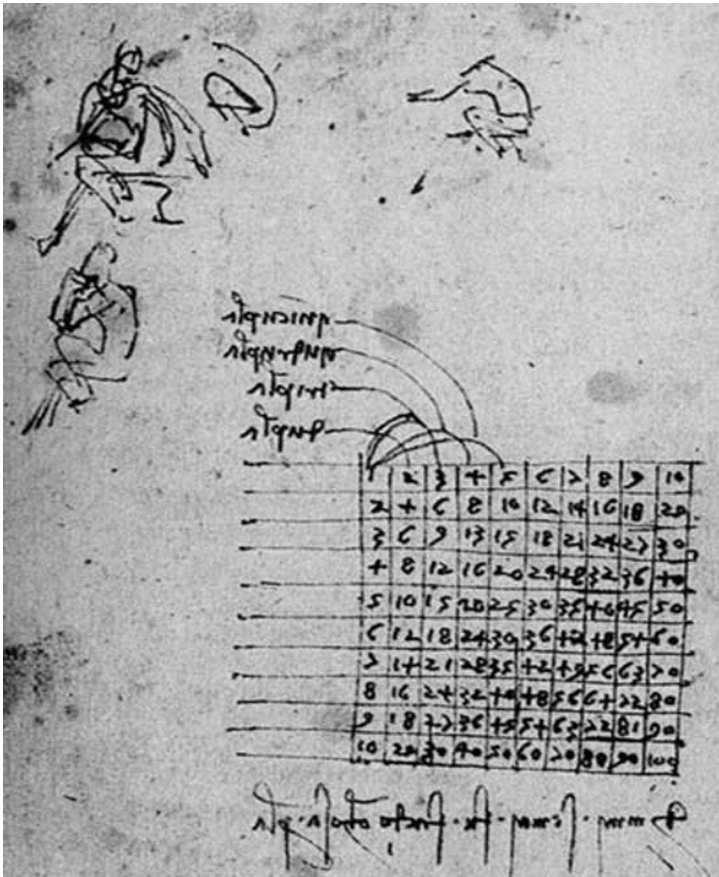 quincupla
quadrupla
tripla
dupla
1 2 3 4 5 6 7 8 9 10
2 4 6 8 10 12 14 16 18 20
3 6 9 13 15 18 21 24 27 30
4 8 12 16 20 24 28 32 36 40
5 10 15 20 25 30 35 40 45 50
6 12 18 24 30 36 42 48 54 60
7 14 21 28 35 42 49 56 63 70
8 16 24 32 40 48 56 64 72 80
9 18 27 36 45 54 63 72 81 90
10 20 30 40 50 60 70 80 90 100